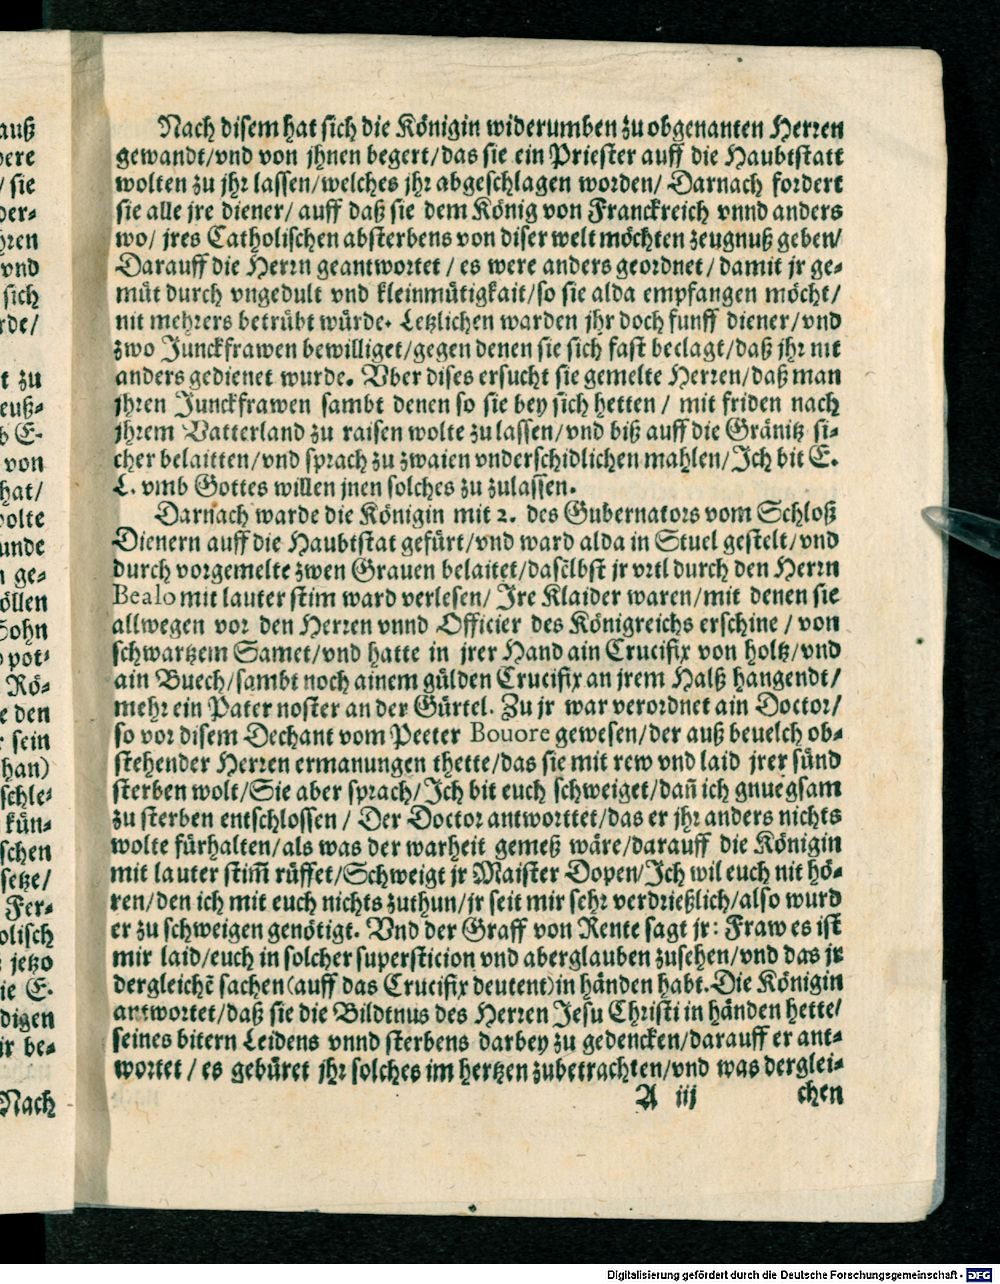 Nach disem hat sich die Königin widerumben zu obgenanten Herren
gewandt/vnd von jhnen begert/das sie ein Priester auff die Haubtstatt
wolten zu jhr lassen/welches jhr abgeschlagen worden/ Darnach fordert
sie alle jre diener/ auff daß sie dem König von Franckreich vnnd anders
wo/ jres Catholischen absterbens von diser welt möchten zeugnuß geben/
Darauff die Herrn geantwortet / es were anders geordnet / damit jr ge-
müt durch vngedult vnd kleinmütigkait/so sie alda empfangen möcht/
nit mehrers betrübt würde. Letzlichen warden jhr doch funff diener/vnd
zwo Junckfrawen bewilliget/gegen denen sie sich fast beclagt/daß jhr nit
anders gedienet wurde. Vber dises ersucht sie gemelte Herren/daß man
jhren Junckfrawen sambt denen so sie bey sich hetten / mit friden nach
jhrem Vatterland zu raisen wolte zu lassen/vnd biß auff die Gränitz si-
cher belaitten/vnd sprach zu zwaien vnderschidlichen mahlen/Ich bit E.
L. vmb Gottes willen jnen solches zu zulassen.
Darnach warde die Königin mit 2. des Gubernators vom Schloß
Dienern auff die Haubtstat gefürt/vnd ward alda in Stuel gestelt/vnd
durch vorgemelte zwen Grauen belaitet/daselbst jr vrtl durch den Herrn
Bealo mit lauter stim ward verlesen/ Ire Klaider waren/mit denen sie
allwegen vor den Herren vnnd Officier des Königreichs erschine / von
schwartzem Samet/vnd hatte in jrer Hand ain Crucifix von holtz/vnd
ain Buech/sambt noch ainem gülden Crucifix an jrem Halß hangendt/
mehr ein Pater noster an der Gürtel. Zu jr war verordnet ain Doctor/
so vor disem Dechant vom Peeter Bouore gewesen/der auß beuelch ob-
stehender Herren ermanungen thette/das sie mit rew vnd laid jrer sünd
sterben wolt/Sie aber sprach/Ich bit euch schweiget/dañ ich gnuegsam
zu sterben entschlossen / Der Doctor antworttet/das er jhr anders nichts
wolte fürhalten/als was der warheit gemeß wäre/darauff die Königin
mit lauter stim̃ rüffet/Schweigt jr Maister Dopen/Ich wil euch nit hö-
ren/den ich mit euch nichts zuthun/jr seit mir sehr verdrießlich/also wurd
er zu schweigen genötigt. Vnd der Graff von Rente sagt jr: Fraw es ist
mir laid/euch in solcher supersticion vnd aberglauben zusehen/vnd das jr
dergleichẽ sachen(auff das Crucifix deutent)in händen habt. Die Königin
antwortet/daß sie die Bildtnus des Herren Jesu Christi in händen hette/
seines bitern Leidens vnnd sterbens darbey zu gedencken/darauff er ant-
wortet / es gebüret jhr solches im hertzen zubetrachten/vnd was derglei-
A iij chen
auß
/ sie
vnd
sich
rde/
t zu
von
hat/
wolte
ge-
Sohn
Rö-
den
sein
han)
setze/
Fer-
jetzo
ie E.
be-
Nach
Digitalisierung gefördert durch die Deutsche Forschungsgemeinschaft - DFG